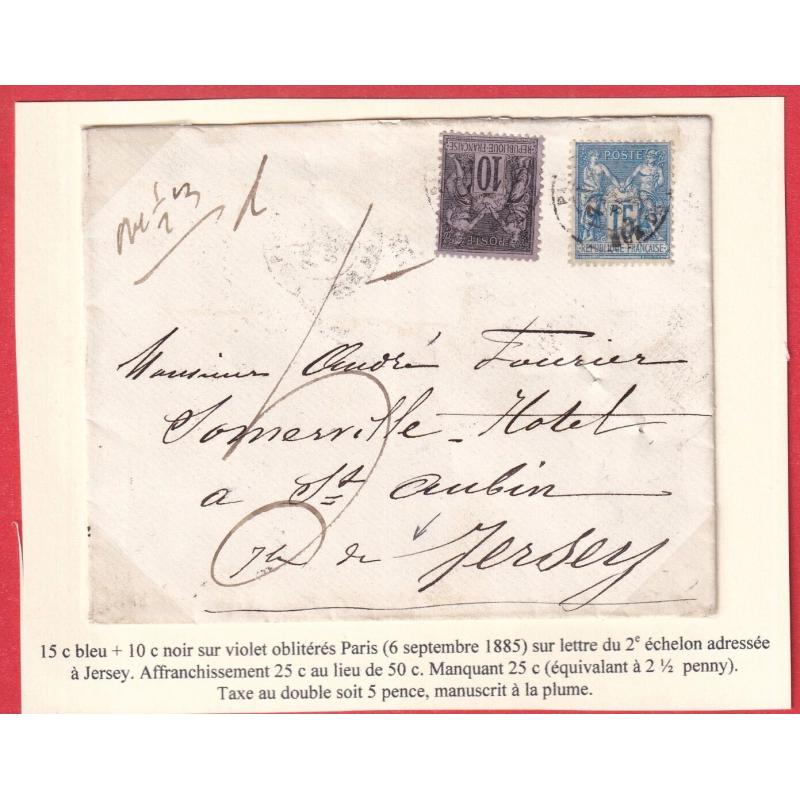 10
REPUBLIQUE FRANCAISE
POSTE
POSTE
15
REPUBLIQUE FRANÇAISE
Monsieur André Fourier
Somerville-Hotel
a St Aubin
de Jersey
15 c bleu + 10 c noir sur violet oblitérés Paris (6 septembre 1885) sur lettre du 2e échelon adressée
à Jersey. Affranchissement 25 c au lieu de 50 c. Manquant 25 c (équivalant à 2 ½ penny).
Taxe au double soit 5 pence, manuscrit à la plume.